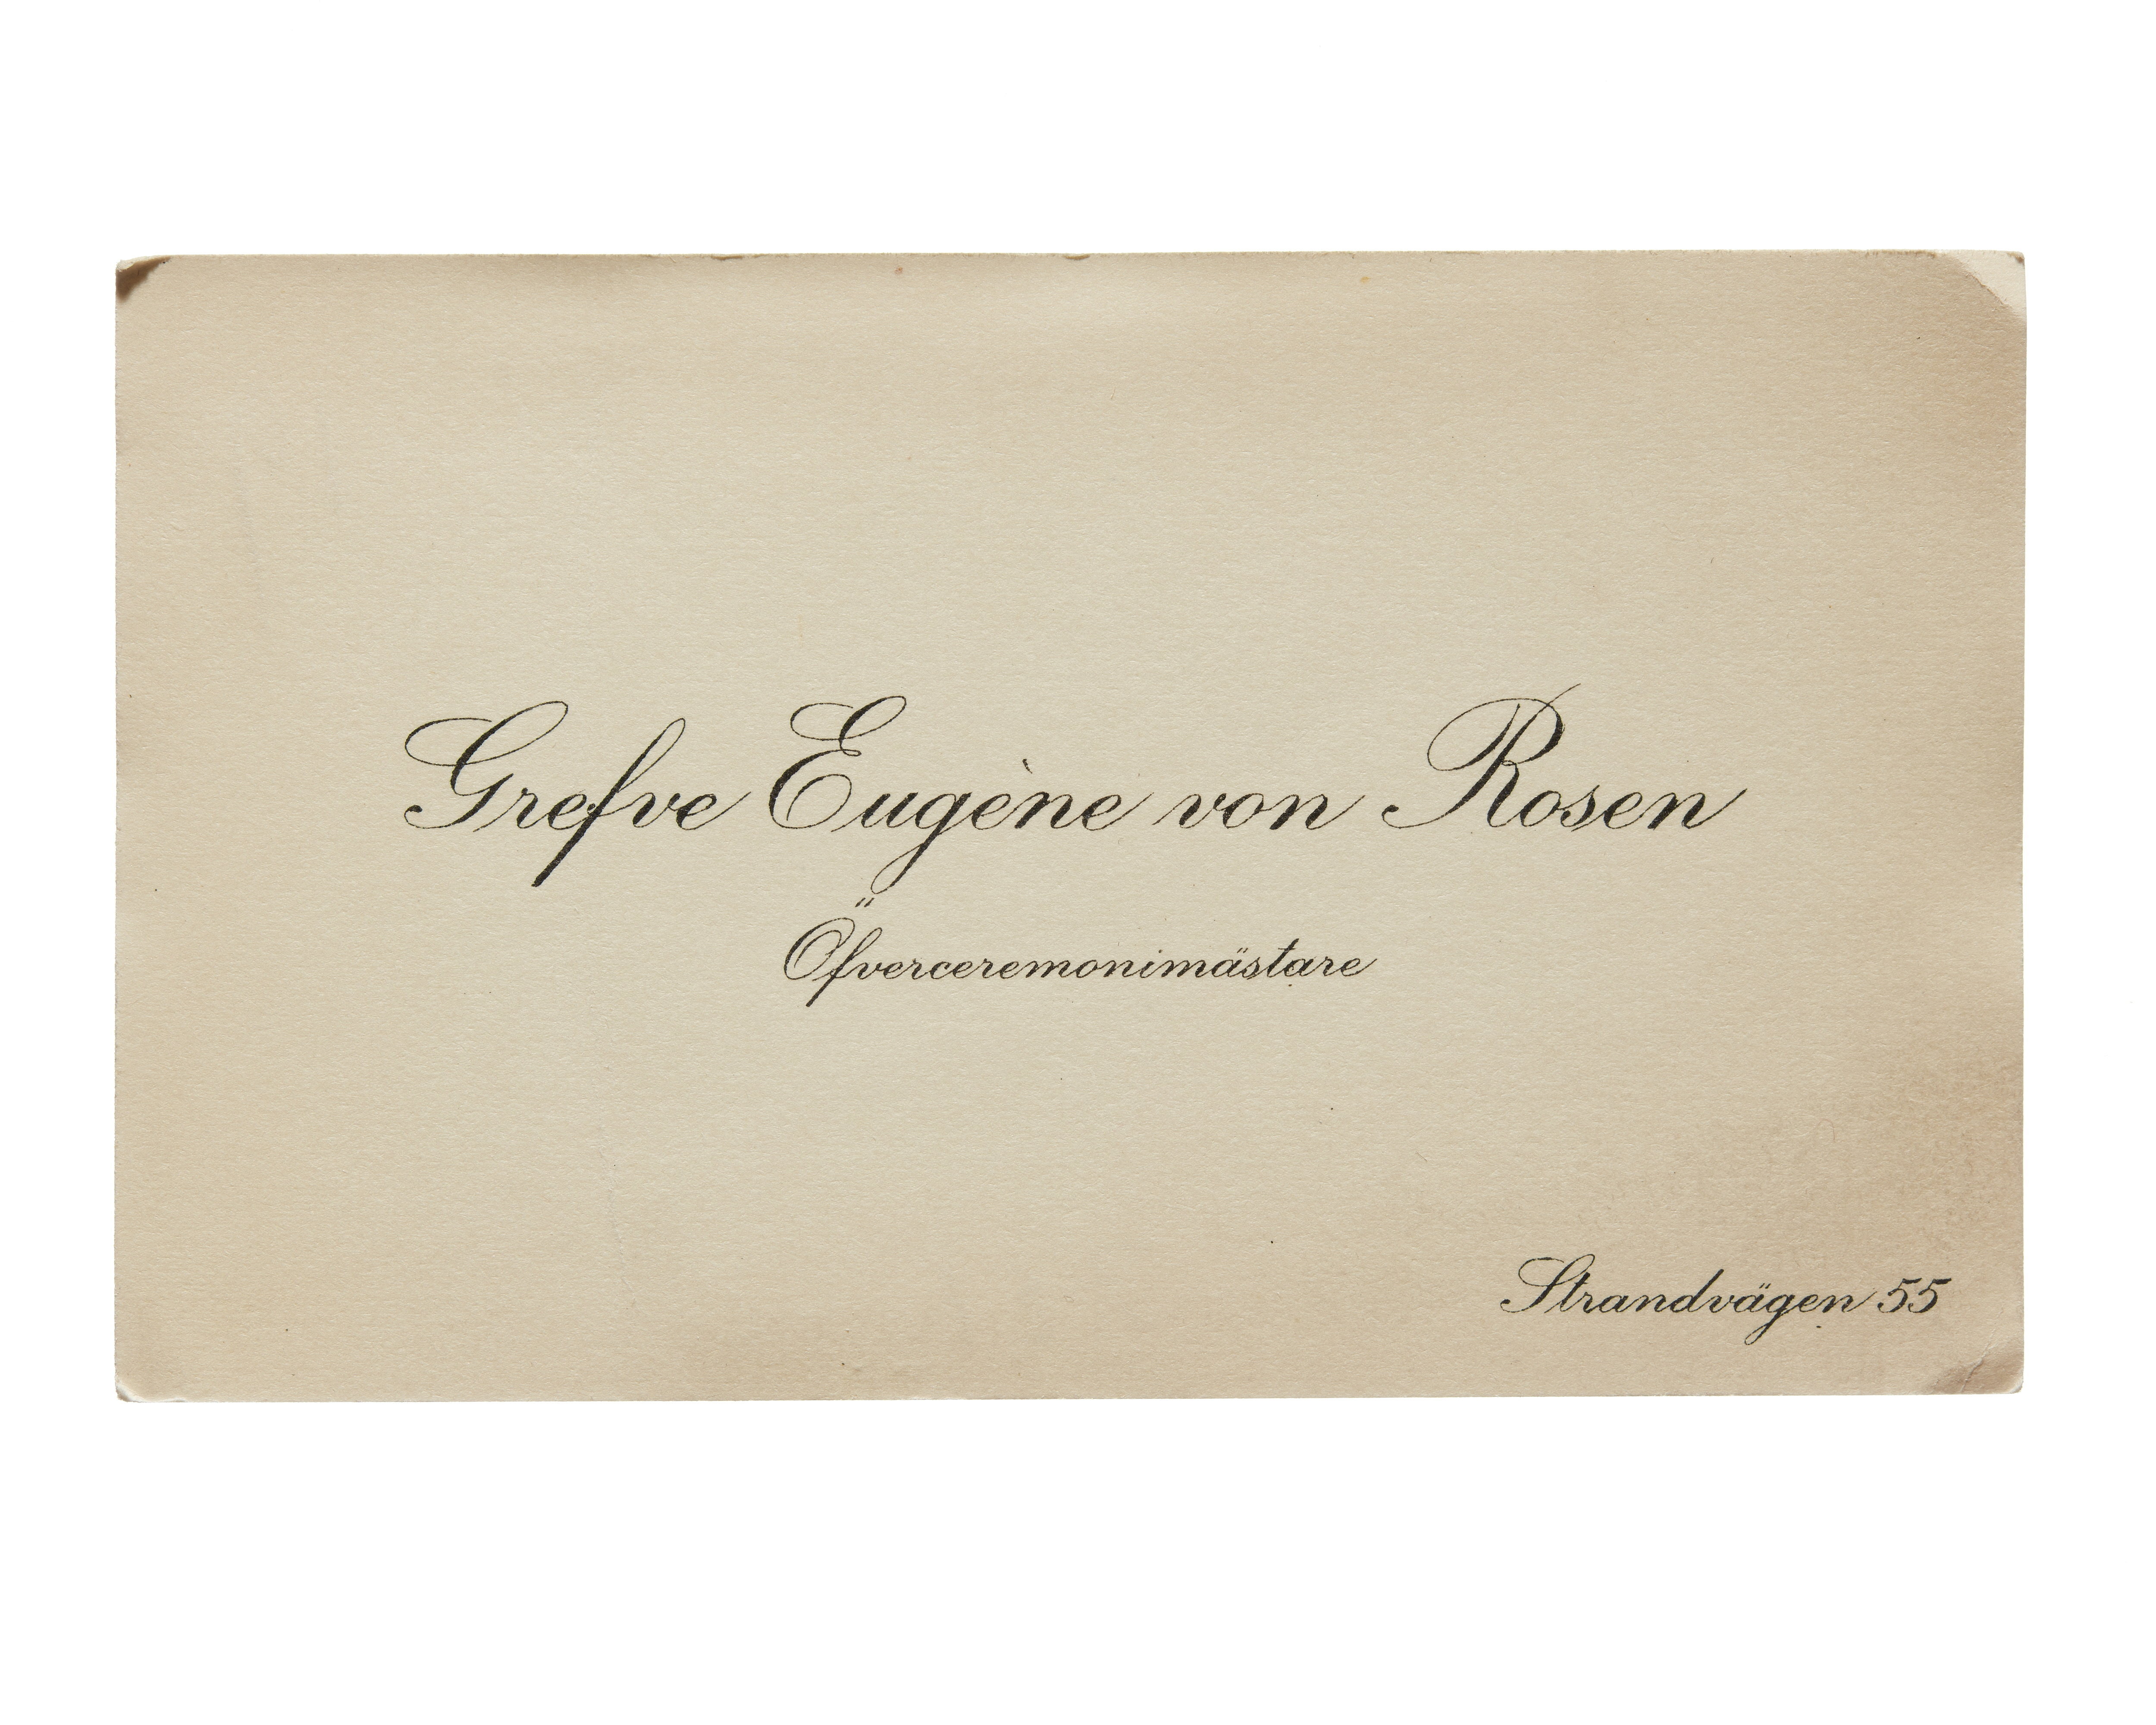 Grefve Eugène von Rosen
Öfverceremonimästare
Strandvägen 55